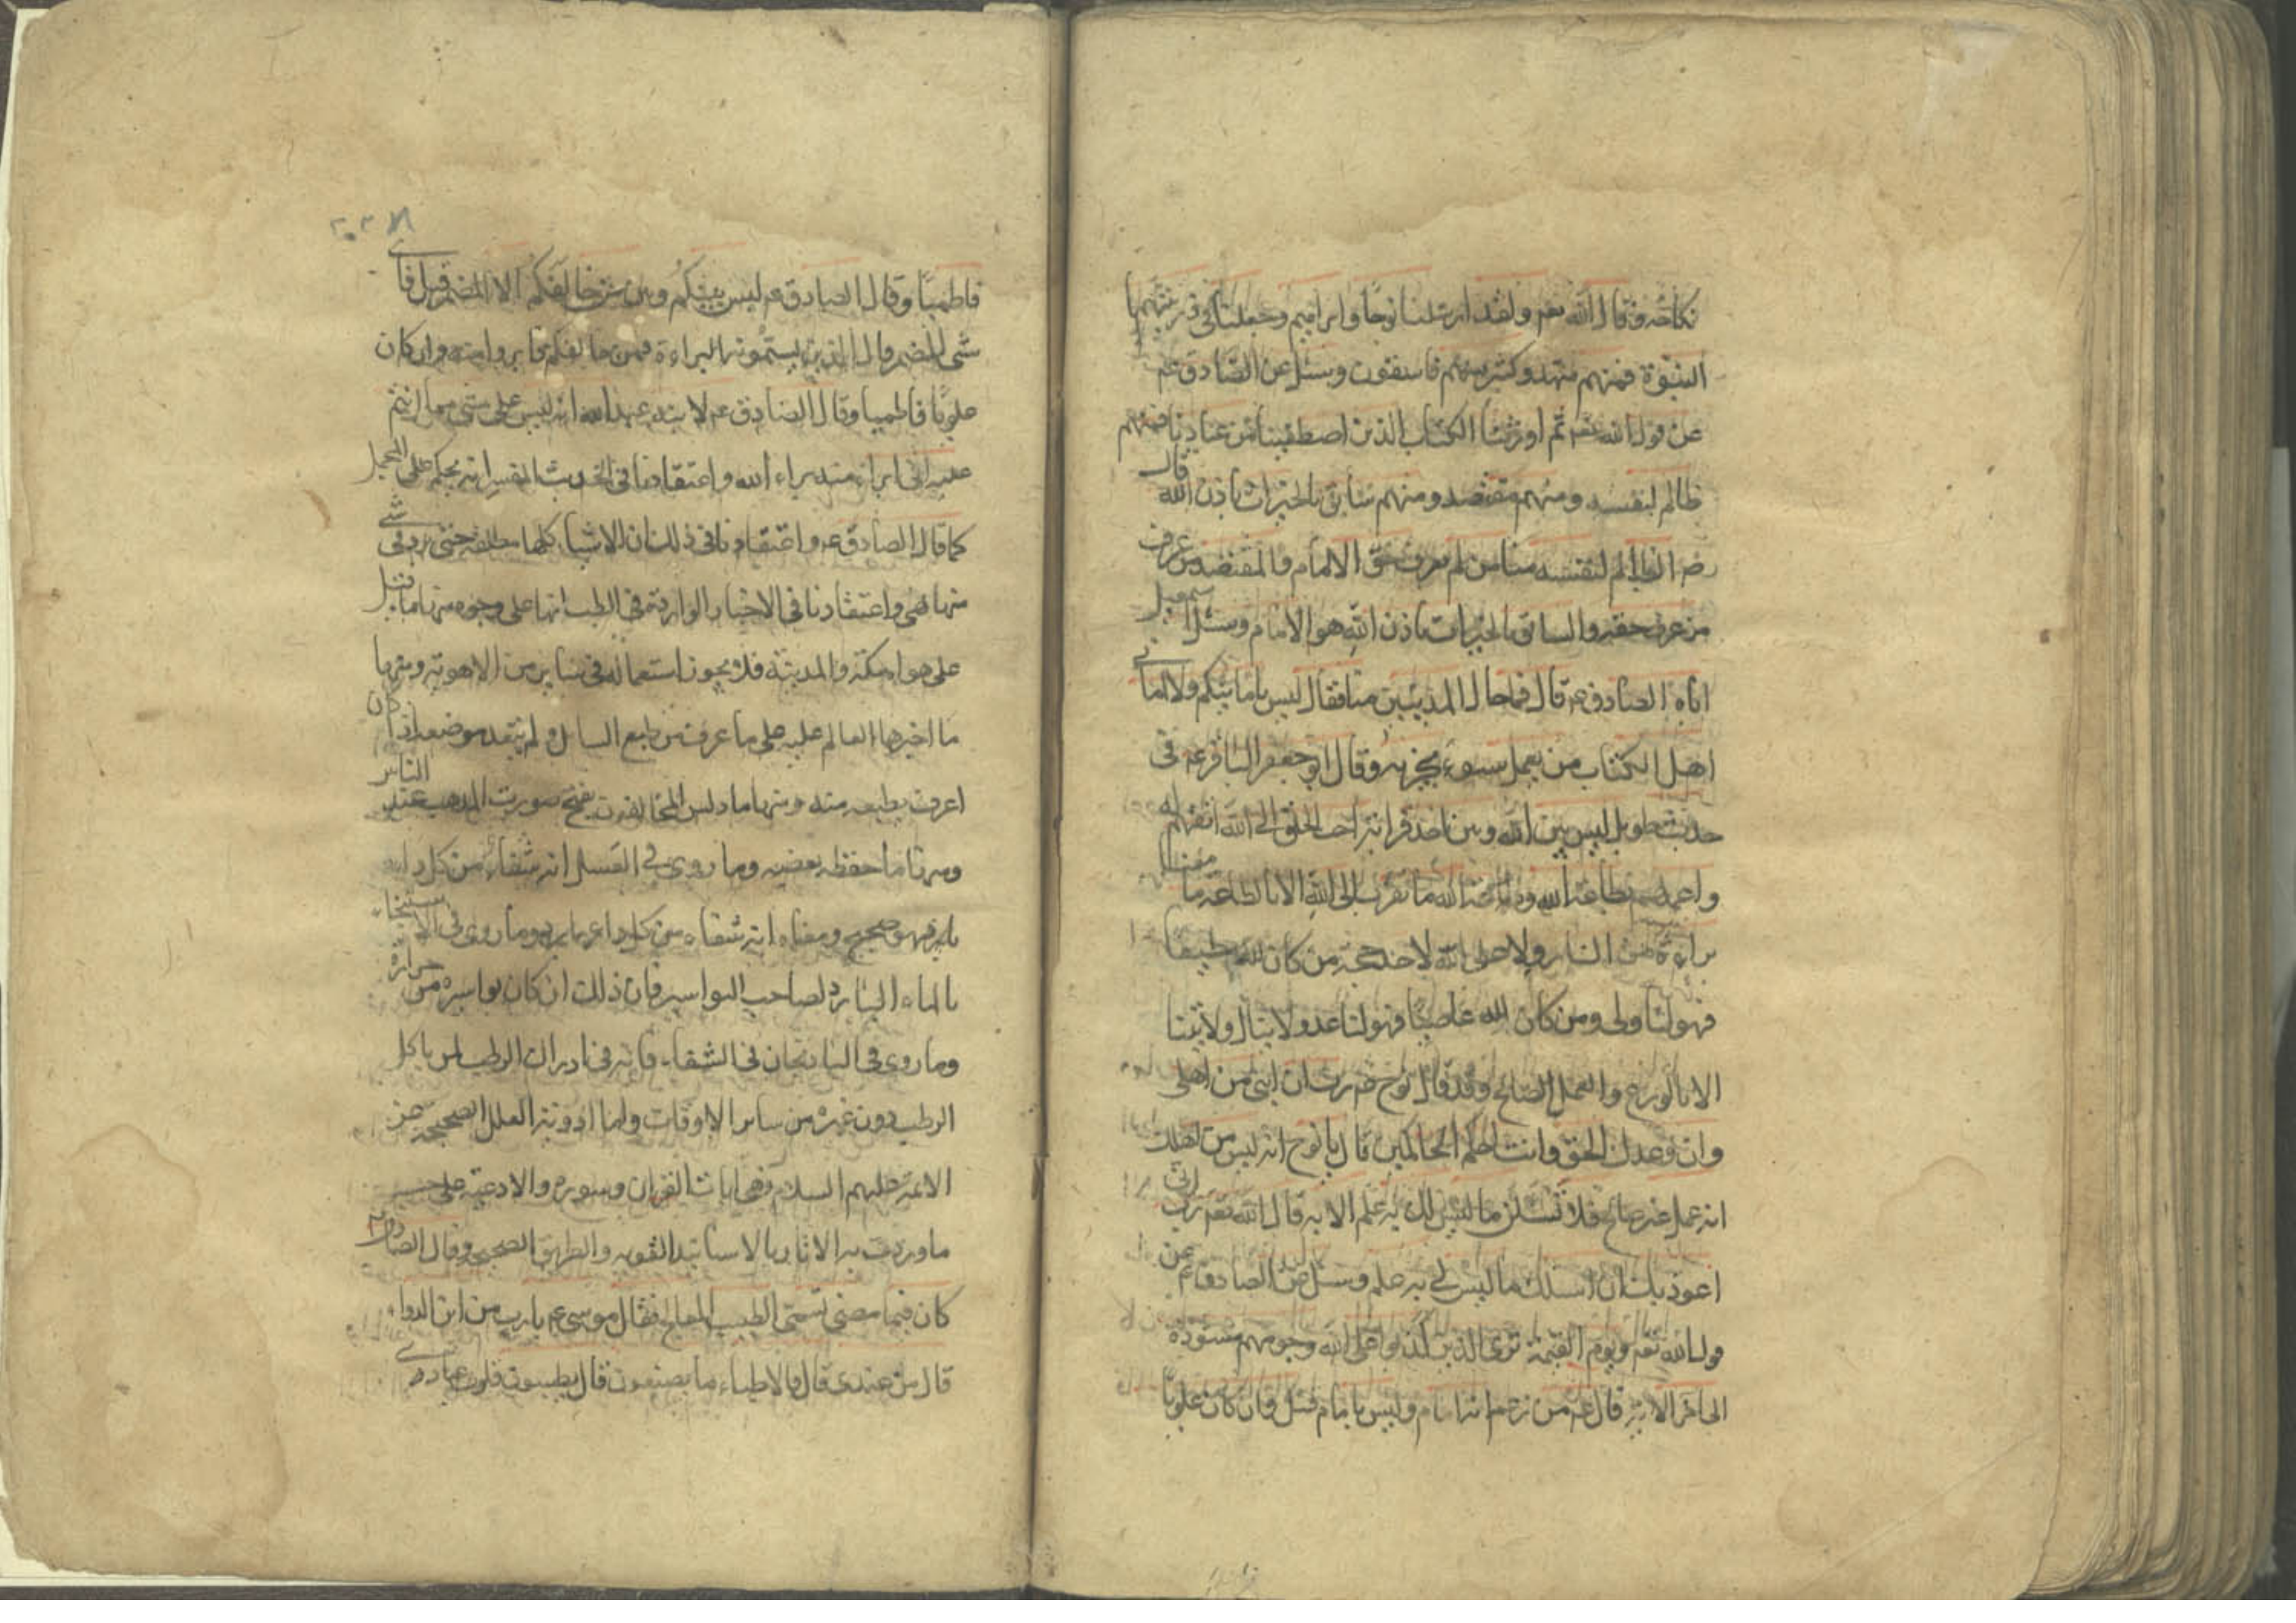 نكاحه وقال الله تعم ولقد ارسلنا نوحا وابراهيم وجعلنا في ذريتهما
النبوة فمنهم مهتد وكثير منهم فاسقون وسئل عن الصادق عم
عن قول الله تعم ثم اورثنا الكتاب الذين اصطفينا من عبادنا فمنهم
ظالم لنفسه ومنهم مقتصد ومنهم سابق بالخيرات باذن الله قال
الظالم لنفسه منا من لم يعرف حق الامام والمقتصد من عرف
من عرف حقه والسابق بالخيرات باذن الله هو الامام وسئل اسمعيل
اباه الصادق عم قال فما حال المذنبين منا فقال ليس بامانيكم ولا اماني
اهل الكتاب من يعمل سوء يجز به وقال ابو جعفر الباقر عم في
حديث طويل ليس بين الله وبين احد قرابة احب الخلق الى الله اتقهم له
واعملهم بطاعة الله والله ما تقرب الى الله الا بالطاعة ما معنا
براءة من النار ولا على الله لاحد حجة من كان لله مطيعا
فهو لنا ولي ومن كان لله عاصيا فهو لنا عدو لا ينال ولايتنا
الا بالورع والعمل الصالح وقد قال نوح عم رب ان ابني من اهلي
وان وعدك الحق وانت احكم الحاكمين قال يا نوح انه ليس من اهلك
انه عمل غير صالح فلا تسئلن ما ليس لك به علم الاية قال الله تعم رب اني
اعوذ بك ان اسئلك ما ليس لي به علم وسئل عن الصادق عم عن
قول الله تعم ويوم القيمة ترى الذين كذبوا على الله وجوههم مسودة
الى اخر الاية قال عم من زعم انه امام وليس بامام قيل وان كان علويا
فاطميا وقال الصادق عم ليس بينكم وبين من خالفكم الا المضمر قيل فاي
شي المضمر قال الذين يسمونه البراءة فمن خالفكم فابروا منه وان كان
علويا فاطميا وقال الصادق عم لابنه عبد الله انه ليس على شي مما انتم
عليه اني ابراء منه براء الله واعتقادنا في الحديث المفسر انه يحكم على المجمل
كما قال الصادق عم واعتقادنا في ذلك ان الاشياء كلها مطلقة حتى يرد في شي
منها نهي واعتقادنا في الاخبار الواردة في الطب انها على وجوه منها ما قيل
على هواء مكة والمدينة فلا يجوز استعماله في ساير من الاهوية ومنها
ما اخبرها العالم عليه على ما عرف من طبع السائل ولم يتعد موضعه اذ كان
اعرف بطبعه منه ومنها ما دلس المخالفون بقبح صورت المذهب عند الناس
ومنها ما حفظ بعضه وما روي في العسل انه شفاء من كل داء
بارد فهو صحيح ومعناه انه شفاء من كل داء بارد وما روى في الاستنجاء
بالماء البارد لصاحب البواسير فان ذلك ان كان بواسيره من حرارة
وما روى في الباذنجان في الشفاء فانه في ادراك الرطب لمن ياكل
الرطب دون غيره من سائر الاوقات واما ادوية العلل الصحيحة عن
الائمة عليهم السلام فهي ايات القران وسوره والادعية على حسب
ما وردت به الاثار بالاسانيد القوية والطريق الصحيح وقال الصادق ع
كان فيما مضى تسمى الطبيب المعالج فقال موسى عم يا رب من اين الدواء
قال من عندى قال فالاطباء ما يصنعون قال يطيبون قلوب عبادي